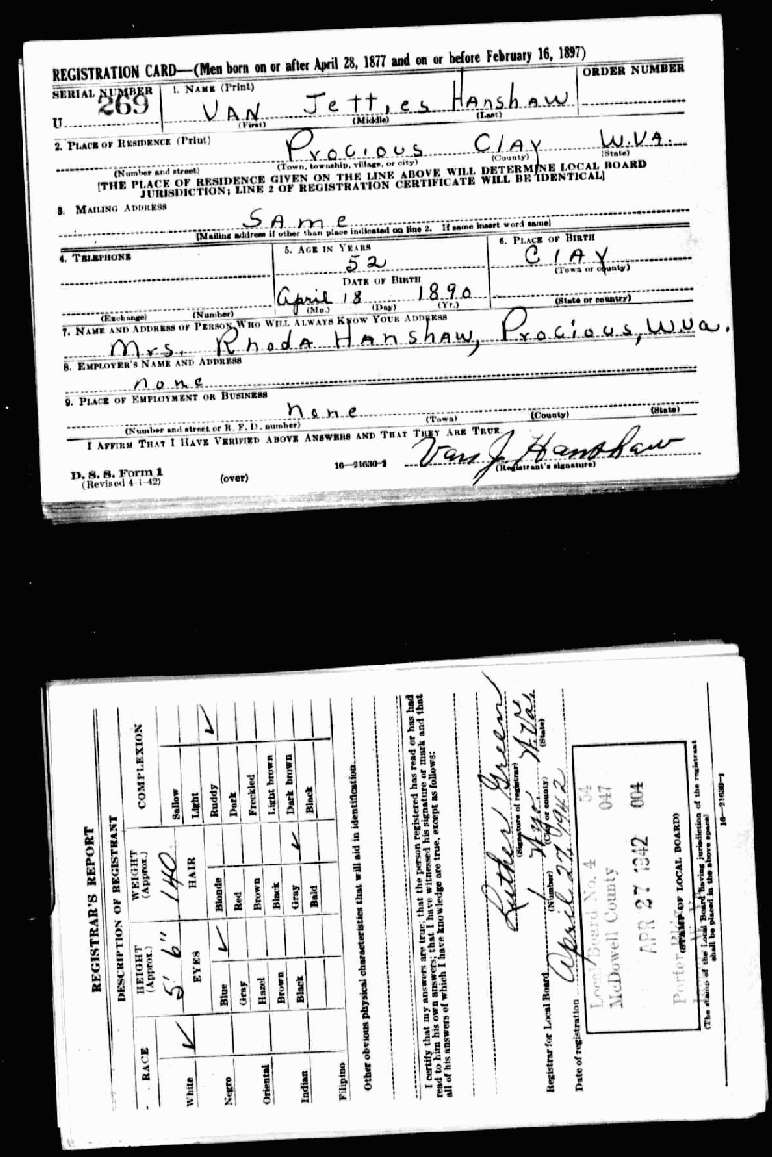 REGISTRATION CARD—(Men born on or after April 28, 1877 and on or before February 16, 1897)
SERIAL NUMBER 1. NAME (Print) ORDER NUMBER
269
U VAN Jetties Hanshaw
(First) (Middle) (Last)
2. PLACE OF RESIDENCE (Print)
Procious Clay W.Va.
(Number and street) (Town, township, village, or city) (County) (State)
[THE PLACE OF RESIDENCE GIVEN ON THE LINE ABOVE WILL DETERMINE LOCAL BOARD
JURISDICTION; LINE 2 OF REGISTRATION CERTIFICATE WILL BE IDENTICAL]
3. MAILING ADDRESS
SAme
[Mailing address if other than place indicated on line 2. If same insert word same]
4. TELEPHONE 5. AGE IN YEARS 6. PLACE OF BIRTH
52 CLAY
(Town or county)
DATE OF BIRTH
April 18 1890
(Exchange) (Number) (Mo.) (Day) (Yr.) (State or country)
7. NAME AND ADDRESS OF PERSON WHO WILL ALWAYS KNOW YOUR ADDRESS
Mrs. Rhoda Hanshaw, Procious, W.Va.
8. EMPLOYER'S NAME AND ADDRESS
none
9. PLACE OF EMPLOYMENT OR BUSINESS
none
(Number and street or R. F. D. number) (Town) (County) (State)
I AFFIRM THAT I HAVE VERIFIED ABOVE ANSWERS AND THAT THEY ARE TRUE.
D. S. S. Form 1
(Revised 4-1-42) (over) 16—21630-1 Van J Hanshaw
(Registrant's signature)
REGISTRAR'S REPORT
DESCRIPTION OF REGISTRANT
RACE HEIGHT (Approx.) WEIGHT (Approx.) COMPLEXION
5' 6" 140
EYES HAIR
White ✓
Negro
Oriental
Indian
Filipino
Blue ✓
Gray
Hazel
Brown
Black
Blonde
Red
Brown
Black
Gray ✓
Bald
Sallow
Light
Ruddy ✓
Dark
Freckled
Light brown
Dark brown
Black
Other obvious physical characteristics that will aid in identification
I certify that my answers are true; that the person registered has read or has had
read to him his own answers; that I have witnessed his signature or mark and that
all of his answers of which I have knowledge are true, except as follows:
Luther Green
(Signature of registrar)
Registrar for Local Board 1 W.Va.
(Number) (City or county) (State)
Date of registration April 27, 1942
Local Board No. 4 54
McDowell County 047
APR 27 1942 004
(STAMP OF LOCAL BOARD)
(The stamp of the Local Board having jurisdiction of the registrant
shall be placed in the above space)
16—21630-1